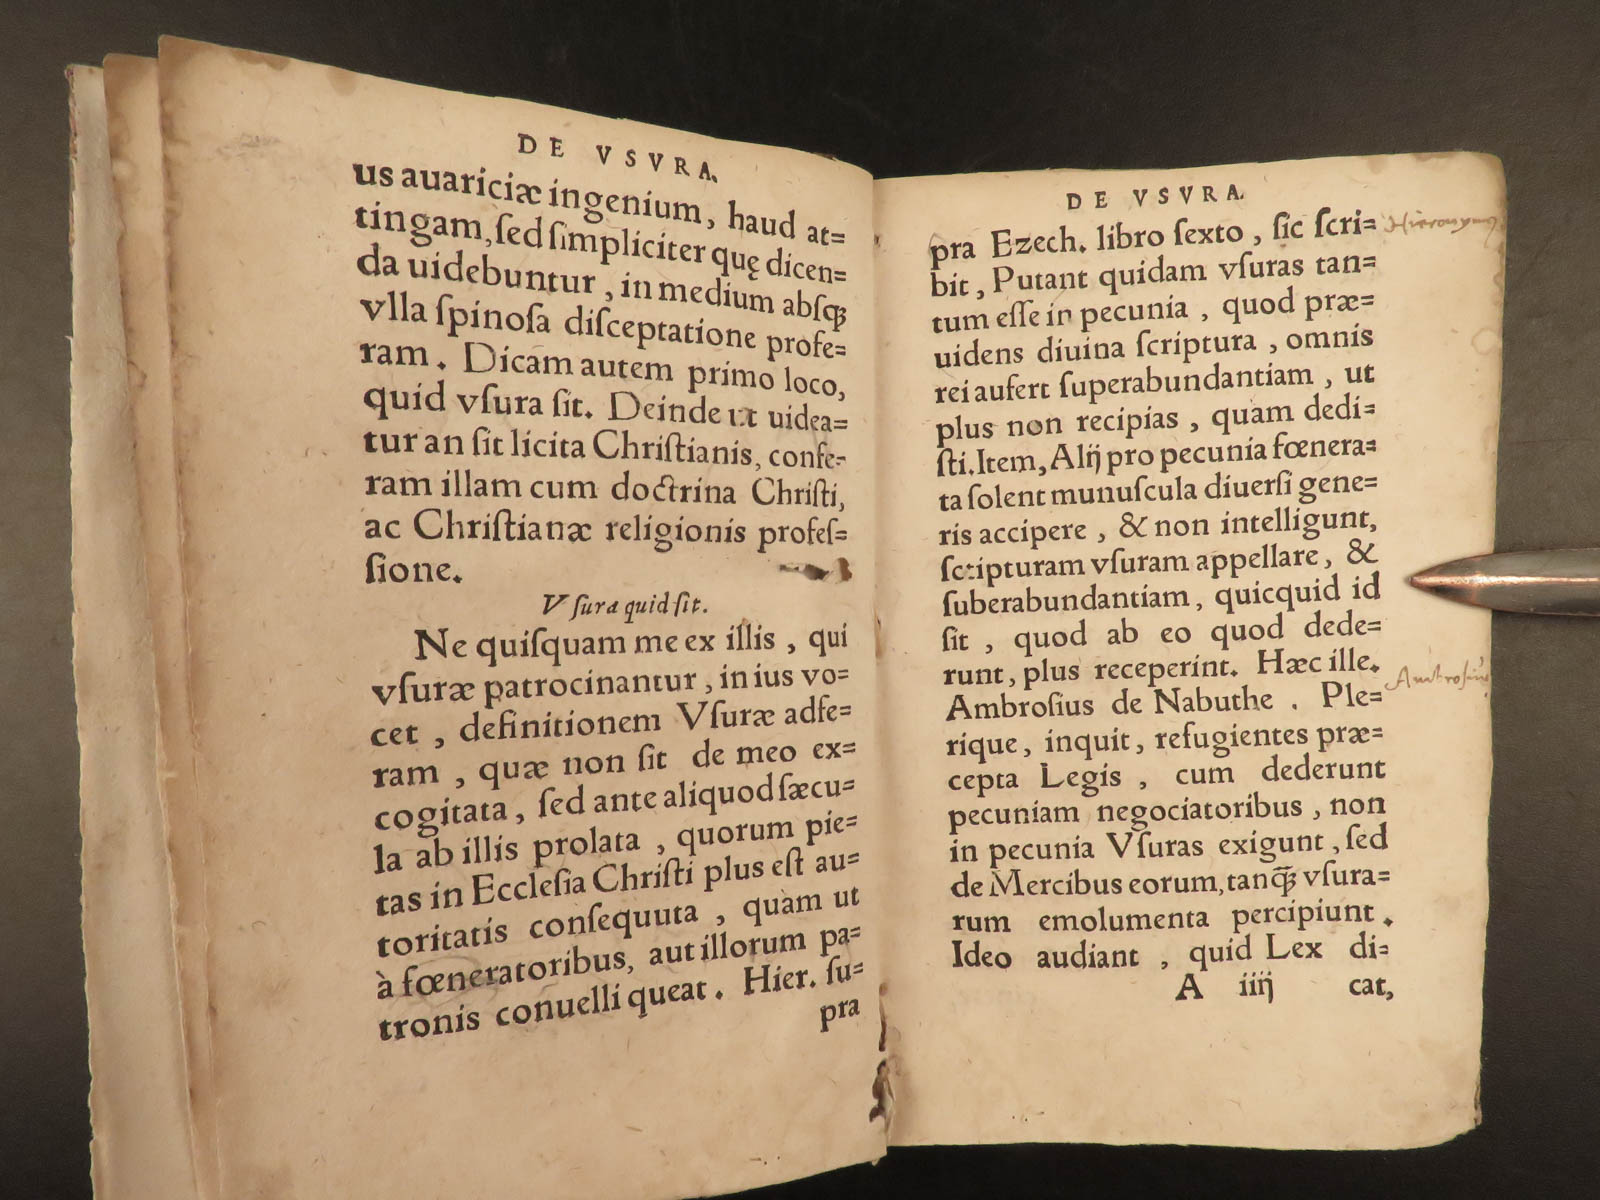 DE VSVRA.
us auariciæ ingenium, haud at=
tingam, ſed ſimpliciter quę dicen=
da uidebuntur, in medium abſqꝫ
vlla ſpinoſa diſceptatione profe=
ram. Dicam autem primo loco,
quid vſura ſit. Deinde ut uidea=
tur an ſit licita Chriſtianis, confe=
ram illam cum doctrina Chriſti,
ac Chriſtianæ religionis profeſ=
ſione.
Vſura quid ſit.
Ne quiſquam me ex illis, qui
vſuræ patrocinantur, in ius vo=
cet, definitionem Vſuræ adfe=
ram, quæ non ſit de meo ex=
cogitata, ſed ante aliquod ſæcu=
la ab illis prolata, quorum pie=
tas in Eccleſia Chriſti plus eſt au=
toritatis conſequuta, quàm ut
à fœneratoribus, aut illorum pa=
tronis conuelli queat. Hier. ſu=
pra
DE VSVRA.
pra Ezech. libro ſexto, ſic ſcri=
Hieronymus
bit, Putant quidam vſuras tan=
tum eſſe in pecunia, quod præ=
uidens diuina ſcriptura, omnis
rei aufert ſuperabundantiam, ut
plus non recipias, quàm dedi=
ſti. Item, Alij pro pecunia fœnera=
ta ſolent munuſcula diuerſi gene=
ris accipere, & non intelligunt,
ſcripturam vſuram appellare, &
ſuberabundantiam, quicquid id
ſit, quod ab eo quod dede=
runt, plus receperint. Hæc ille.
Ambroſius
Ambroſius de Nabuthe. Ple=
rique, inquit, refugientes præ=
cepta Legis, cum dederunt
pecuniam negociatoribus, non
in pecunia Vſuras exigunt, ſed
de Mercibus eorum, tanqꝫ̃ vſura=
rum emolumenta percipiunt.
Ideo audiant, quid Lex di=
A iiij cat,